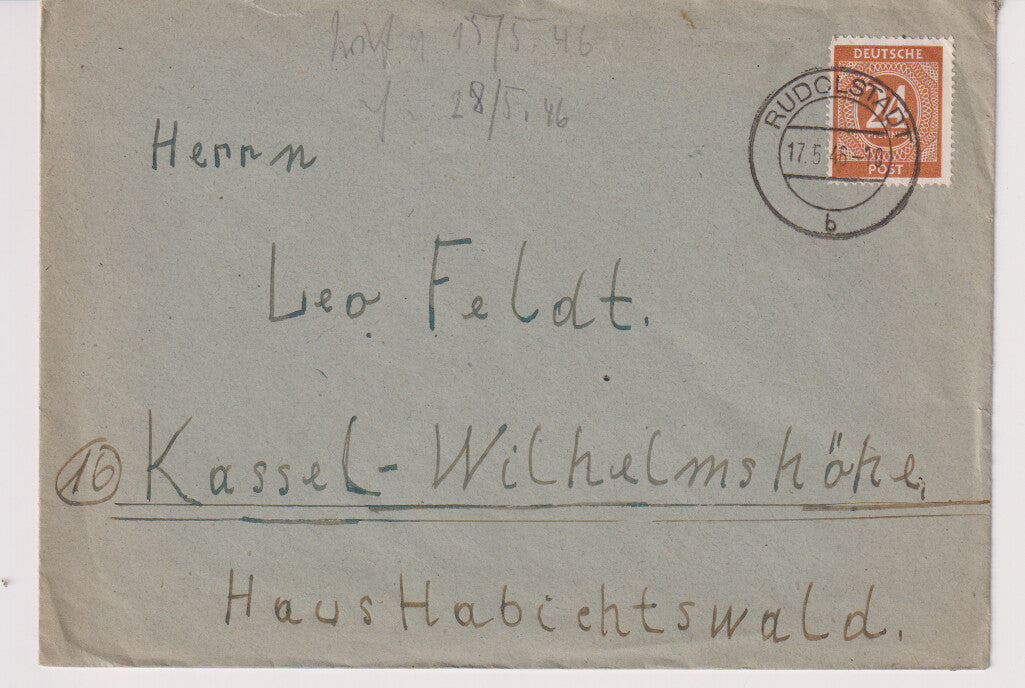 15/5.46
28/5.46
DEUTSCHE
24
POST
RUDOLSTADT
17.5.46
b
Herrn
Leo Feldt.
16 Kassel-Wilhelmshöhe,
Haus Habichtswald.